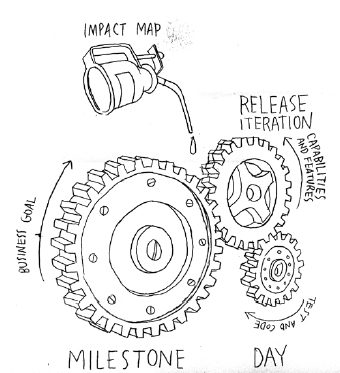 IMPACT MAP
RELEASE
ITERATION
CAPABILITIES
AND FEATURES
BUSINESS GOAL
TEST AND CODE
MILESTONE
DAY